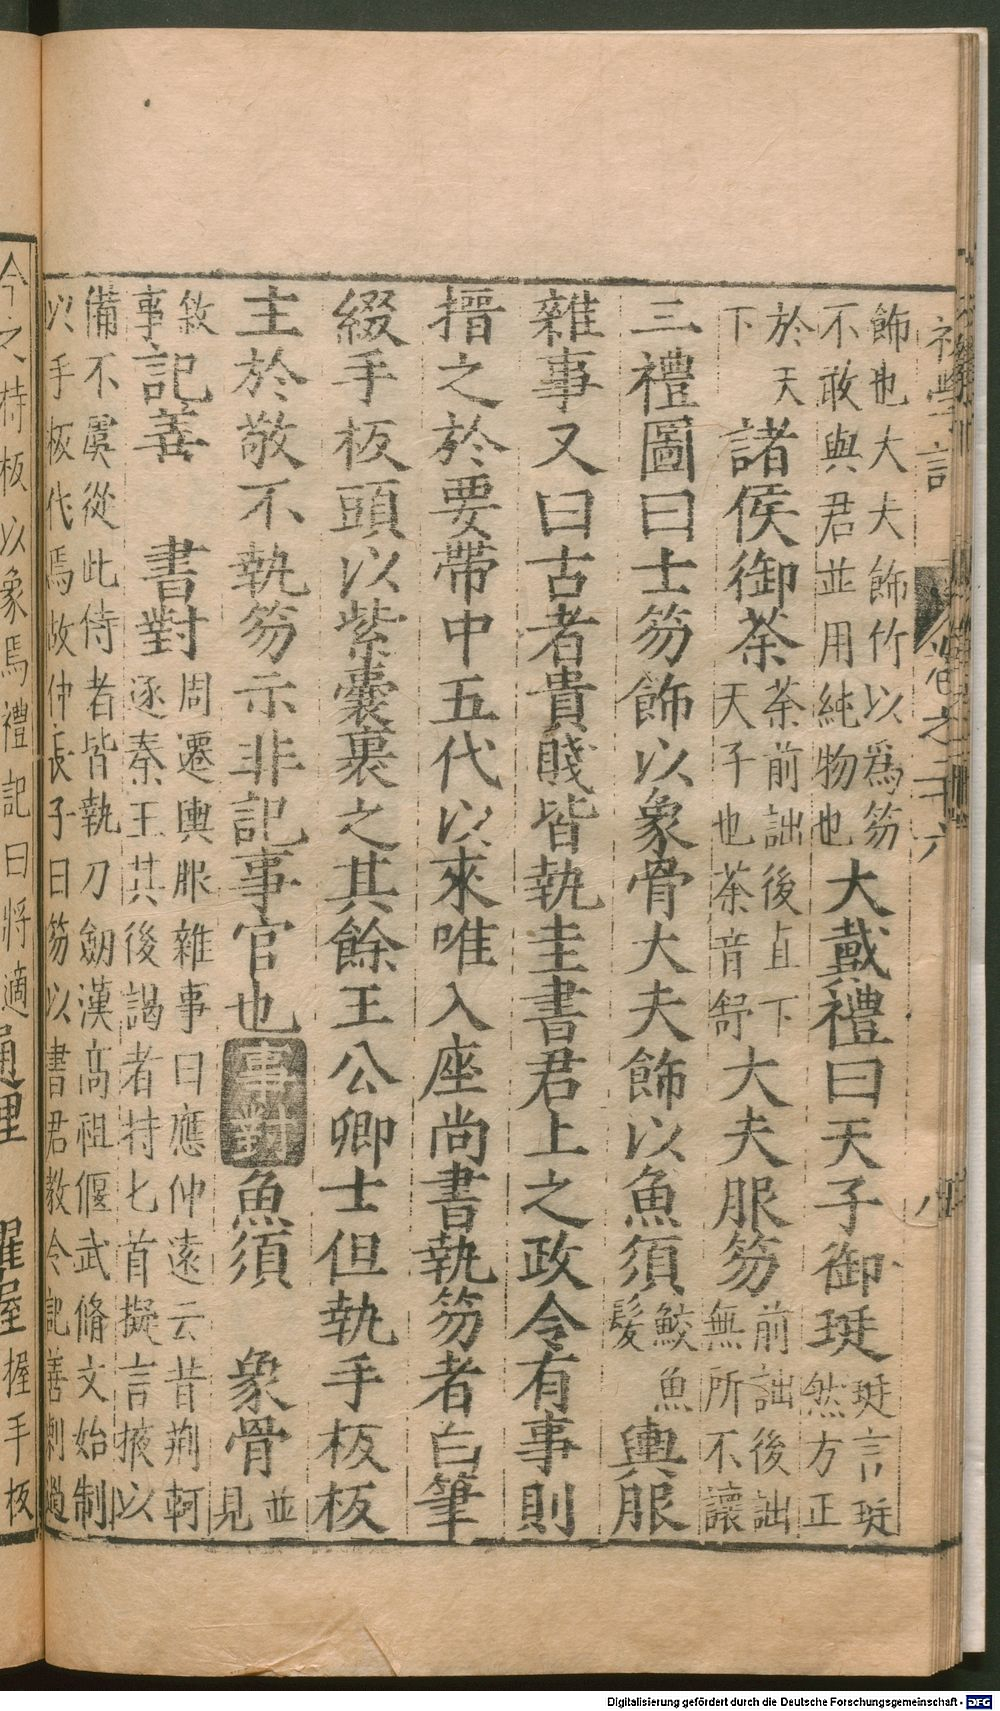 初學記 卷之二十六 八
飾也大大飾竹以爲笏
不敢與君並用純物也
大戴禮曰天子御珽
珽言珽
然方正
於天
下
諸侯御荼
荼前詘後直下
天子也荼音舒
大夫服笏
前詘後詘
無所不讓
三禮圖曰士笏飾以象骨大夫飾以魚須
鮫魚
髮
輿服
雜事又曰古者貴賤皆執圭書君上之政令有事則
搢之於要帶中五代以來唯入座尚書執笏者白筆
綴手板頭以紫囊裹之其餘王公卿士但執手板板
主於敬不執笏示非記事官也 事對 魚須 象骨
並
見
敘
事
記善 書對
周遷輿服雜事曰應仲遠云昔荊軻
逐秦王其後謁者持匕首擬言掖以
備不虞從此侍者皆執刀劒漢高祖偃武脩文始制
以手板代焉故仲長子曰笏以書君教令記善刺過
今之持板以象焉禮記曰將適
通理
握手板
Digitalisierung gefördert durch die Deutsche Forschungsgemeinschaft - DFG